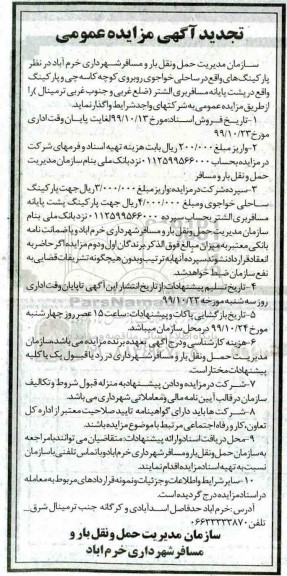 تجدید آگهی مزایده عمومی
سازمان مدیریت حمل ونقل بار و مسافر شهرداری خرم آباد در نظر
پارکینگ های واقع در ساحلی خواجوی روبروی کوچه کاسه چی و پارکینگ
واقع در پشت پایانه مسافربری الشتر (ضلع غربی و جنوب غربی ترمینال) را
از طریق مزایده عمومی به شرکتهای واجد شرایط واگذار نماید.
۱-تاریخ فروش اسناد:مورخ ۹۹/۱۰/۱۳ لغایت پایان وقت اداری
مورخ ۹۹/۱۰/۲۳
۲-واریز مبلغ ۲۰۰/۰۰۰ ریال بابت هزینه تهیه اسناد و فرمهای شرکت
در مزایده بحساب ۰۱۱۲۵۹۹۵۶۶۰۰۰ نزد بانک ملی بنام سازمان مدیریت
حمل و نقل بار و مسافر
۳-سپرده شرکت در مزایده:واریز مبلغ ۳/۰۰۰/۰۰۰ ریال جهت پارکینگ
ساحلی خواجوی و مبلغ ۴/۰۰۰/۰۰۰ ریال جهت پارکینگ پشت پایانه
مسافربری الشتر بحساب سپرده ۰۱۱۲۵۹۹۵۶۶۰۰۰ نزد بانک ملی بنام
سازمان مدیریت حمل ونقل بار و مسافر شهرداری خرم آباد و یا ضمانت نامه
بانکی معتبر به میزان مبالغ فوق الذکر برندگان اول و دوم مزایده اگر حاضر به
انعقاد قرارداد نشوند سپرده آنها به ترتیب و بدون هیچگونه تشریفات قضایی به
نفع سازمان ضبط خواهد شد.
۴-تاریخ تسلیم پیشنهادات:از تاریخ انتشار این آگهی تا پایان وقت اداری
روز سه شنبه مورخه ۹۹/۱۰/۲۳
۵-تاریخ بازگشایی پاکات و پیشنهادات: ساعت ۱۵ عصر روز چهار شنبه
مورخ ۹۹/۱۰/۲۴ در محل سازمان میباشد.
۶-هزینه کارشناسی و درج آگهی بعهده برنده مزایده می باشد،سازمان
مدیریت حمل و نقل بار و مسافر شهرداری در رد یا قبول یک یا کلیه
پیشنهادات مختار است.
۷-شرکت در مزایده و دادن پیشنهاد به منزله قبول شروط و تکالیف
سازمان در قالب آیین نامه مالی و معاملاتی شهرداری می باشد.
۸-شرکت ها باید دارای گواهینامه تایید صلاحیت معتبر از اداره کل
تعاون،کار و رفاه اجتماعی مرتبط با موضوع مزایده باشند.
۹-محل دریافت اسناد وارائه پیشنهادات:متقاضیان می توانند با مراجعه
به سازمان حمل و نقل بار و مسافر شهرداری خرم آباد ویا تماس تلفنی با سازمان
نسبت به تهیه اسناد مزایده اقدام نمایند.
۱۰-سایر شرایط واطلاعات و جزئیات و نمونه قراردادهای مربوط به معامله
در اسناد مزایده درج گردیده است.
آدرس :خرم آباد حدفاصل اسدآبادی و کرگانه جنب ترمینال شرق_
تلفن۰۶۶۳۳۳۳۳۸۷۰
سازمان مدیریت حمل و نقل بار و
مسافر شهرداری خرم آباد